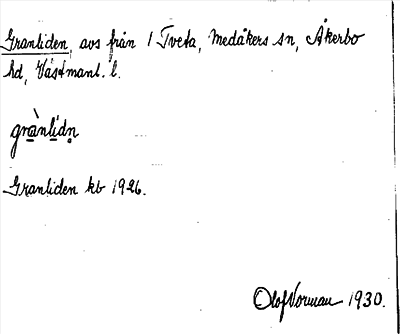 Granliden, avs från 1 Tveta, Medåkers sn, Åkerbo
hd, Västmanl. l.
grànlídn̥
Granliden kb 1926.
Olof Norman 1930.